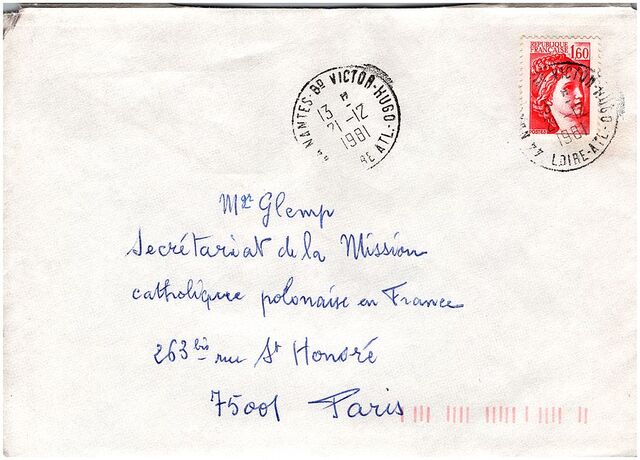 NANTES-Bd VICTOR-HUGO
13 H
21-12
1981
RE ATL.-
REPUBLIQUE
FRANCAISE
1,60
POSTES
VICTOR-HUGO
1981
44 LOIRE-ATL.-
Mgr Glemp
Secrétariat de la Mission
catholique polonaise en France
263 bis rue St Honoré
75001 Paris